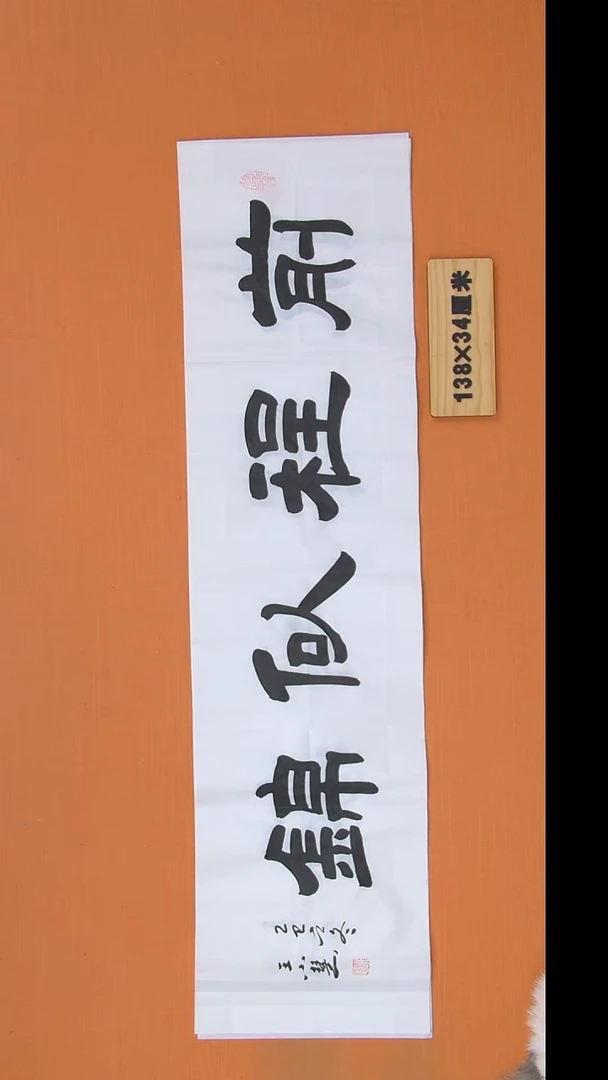 前程似錦
乙巳之冬
王小慧
138×34厘米